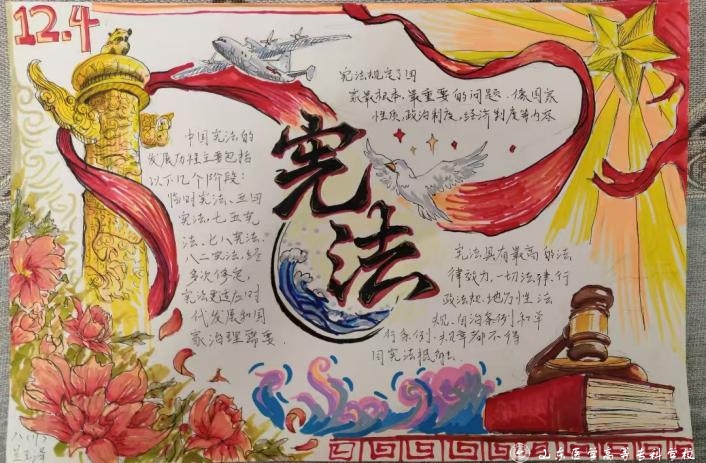 12.4
中国宪法的
发展历程主要包括
以下几个阶段：
临时宪法、五四
宪法、七五宪
法、七八宪法、
八二宪法，经
多次修定，
宪法更适应时
代发展和国
家治理需要.
宪法
宪法规定了国
家最根本、最重要的问题，像国家
性质、政治制度、经济制度等内容
宪法具有最高的法
律效力，一切法律、行
政法规、地方性法
规、自治条例和单
行条例、规章都不得
同宪法抵触.
山东医学高等专科学校